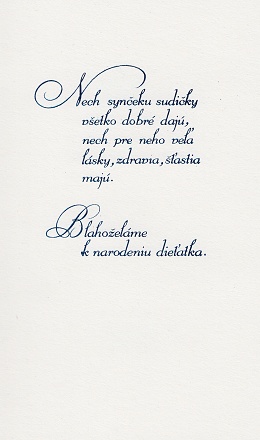 Nech synčeku sudičky
všetko dobré dajú,
nech pre neho veľa
lásky, zdravia, šťastia
majú.
Blahoželáme
k narodeniu dieťatka.